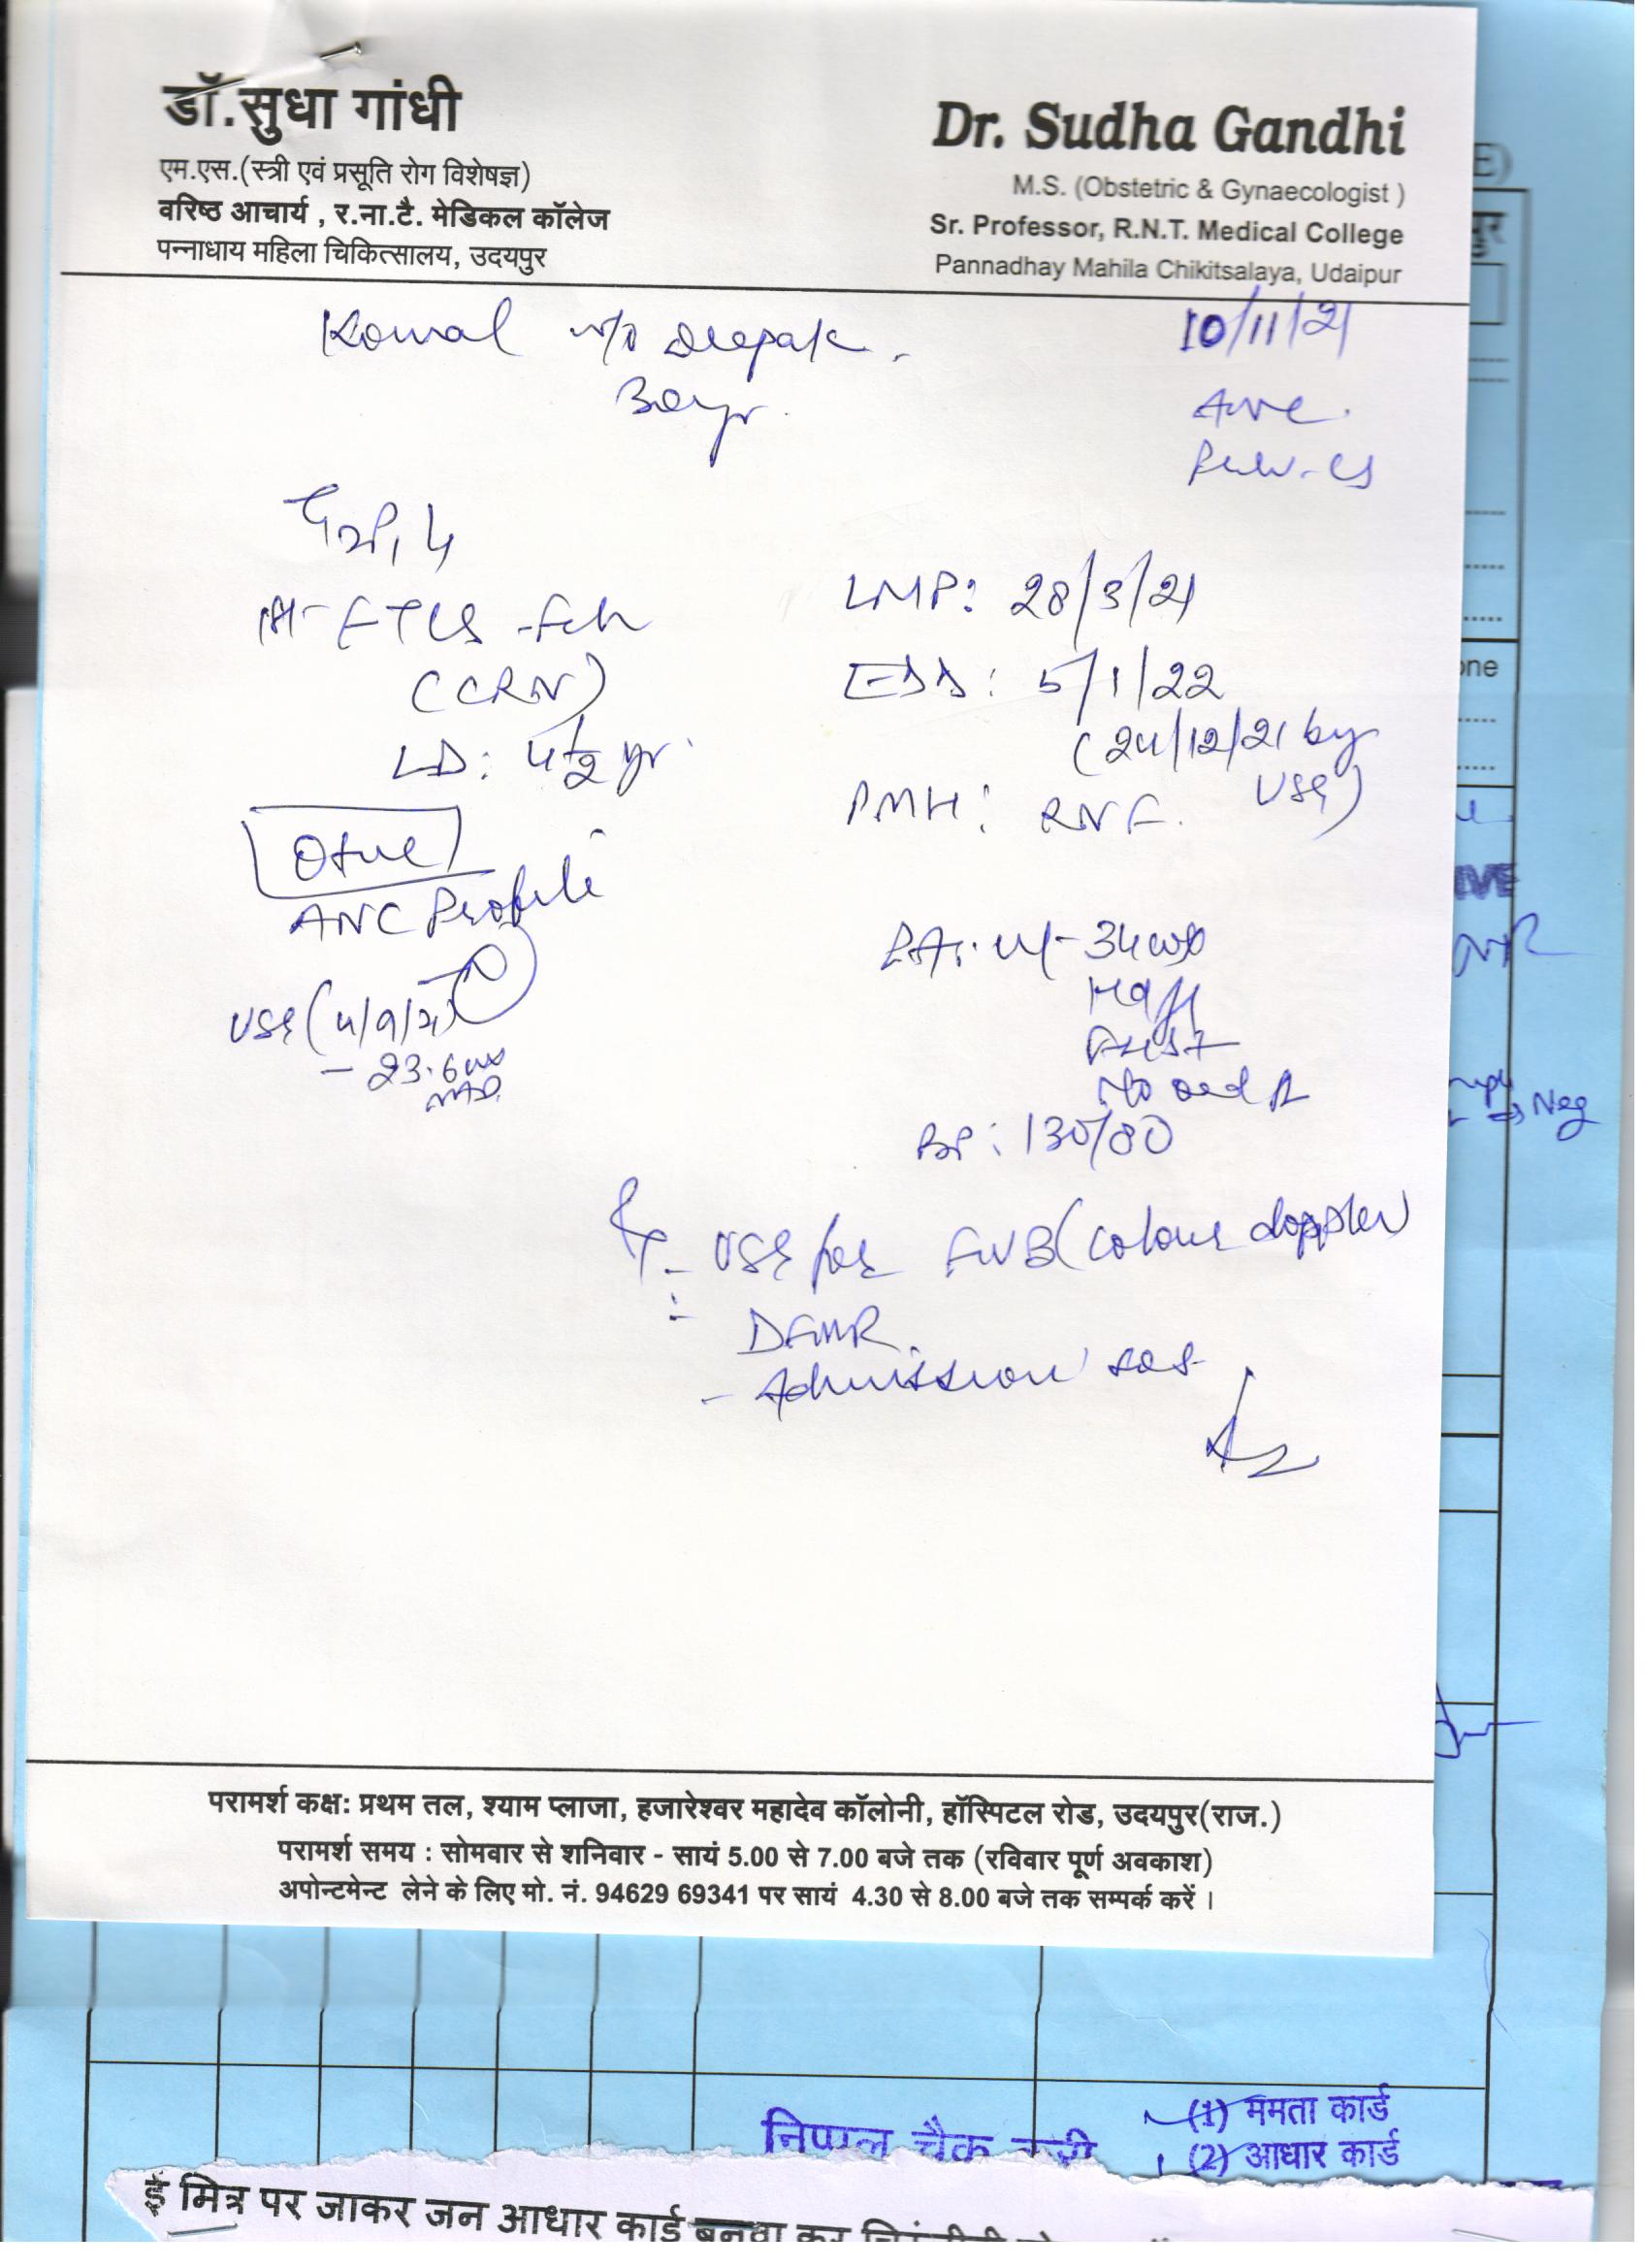 डॉ.सुधा गांधी
एम.एस.(स्त्री एवं प्रसूति रोग विशेषज्ञ)
वरिष्ठ आचार्य , र.ना.टै. मेडिकल कॉलेज
पन्नाधाय महिला चिकित्सालय, उदयपुर
Dr. Sudha Gandhi
M.S. (Obstetric & Gynaecologist )
Sr. Professor, R.N.T. Medical College
Pannadhay Mahila Chikitsalaya, Udaipur
Komal w/o Deepak
30yr
10/11/21
LMP: 28/3/21
(CRN)
EDD: 5/1/22
LD: 4 1/2 yr
(24/12/21 by USG)
PMH: RNF.
O+ve
ANC Profile
N
USG (4/9/21)
- 23.6
PA: 34
BP: 130/80
USG for FWB (colour doppler)
- DFMR
- Admission sos
परामर्श कक्ष: प्रथम तल, श्याम प्लाजा, हजारेश्वर महादेव कॉलोनी, हॉस्पिटल रोड, उदयपुर(राज.)
परामर्श समय : सोमवार से शनिवार - सायं 5.00 से 7.00 बजे तक (रविवार पूर्ण अवकाश)
अपोन्टमेन्ट लेने के लिए मो. नं. 94629 69341 पर सायं 4.30 से 8.00 बजे तक सम्पर्क करें ।
Neg
(1) ममता कार्ड
चैक
(2) आधार कार्ड
ई मित्र पर जाकर जन आधार कार्ड बनवा कर